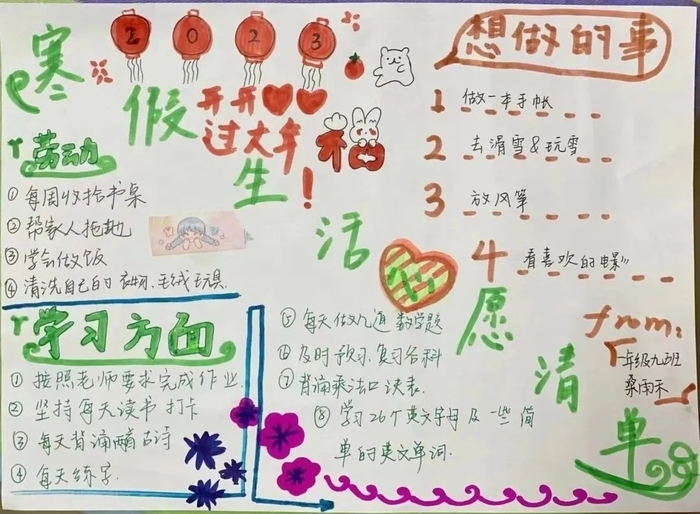 2023
寒假生活心愿清单
开开❤❤
过大年!
福
劳动
① 每周收拾书桌
② 帮家人拖地
③ 学会做饭
④ 清洗自己的衣物、毛绒玩具
学习方面
① 按照老师要求完成作业.
② 坚持每天读书打卡
③ 每天背诵两首古诗
④ 每天练字.
⑤ 每天做九道数学题
⑥ 及时预习、复习各科
⑦ 背诵乘法口诀表.
⑧ 学习26个英文字母及一些简
单的英文单词.
想做的事
1 做一本手帐
2 去滑雪&玩雪
3 放风筝
4 看喜欢的电影!!
from:
一年级九班
桑雨禾